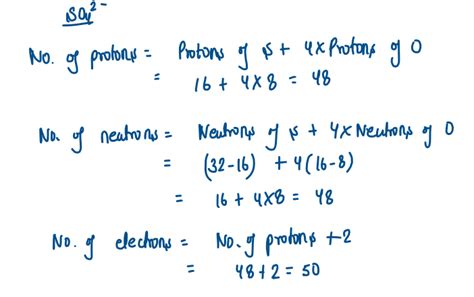 SO₄²⁻
No. of protons = Protons of S + 4x Protons of O
= 16 + 4x8 = 48
No. of neutrons = Neutrons of S + 4x Neutrons of O
= (32-16) + 4(16-8)
= 16 + 4x8 = 48
No. of electrons = No. of protons +2
= 48+2 = 50